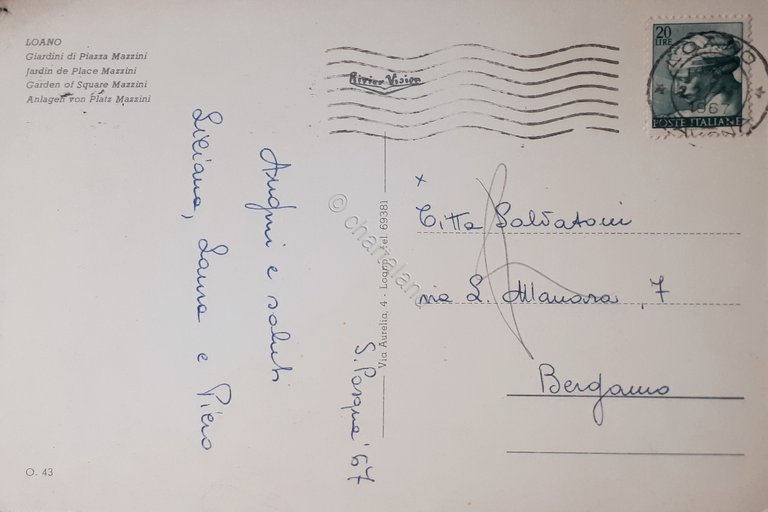 LOANO
Giardini di Piazza Mazzini
Jardin de Place Mazzini
Garden of Square Mazzini
Anlagen von Platz Mazzini
River Vision
20
LIRE
LOANO
1967
POSTE ITALIANE
S. Pasqua '67
Auguri e saluti
Liliana, Laura e Piero
Via Aurelia, 4 - Loano, tel 69381
© chartaland
x
Ditta Salvatoni
via L. Manara, 7
Bergamo
O. 43